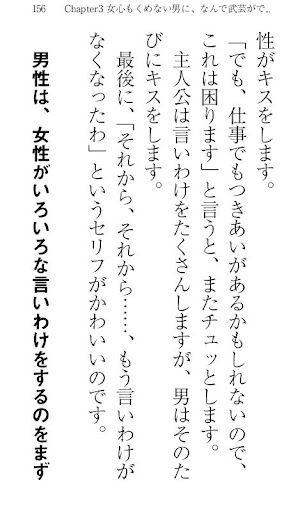 156 Chapter3 女心もくめない男に、なんで武芸がで..
性がキスをします。
「でも、仕事でもつきあいがあるかもしれないので、
これは困ります」と言うと、またチュッとします。
主人公は言いわけをたくさんしますが、男はそのた
びにキスをします。
最後に、「それから、それから……、もう言いわけが
なくなったわ」というセリフがかわいいのです。
男性は、女性がいろいろな言いわけをするのをまず